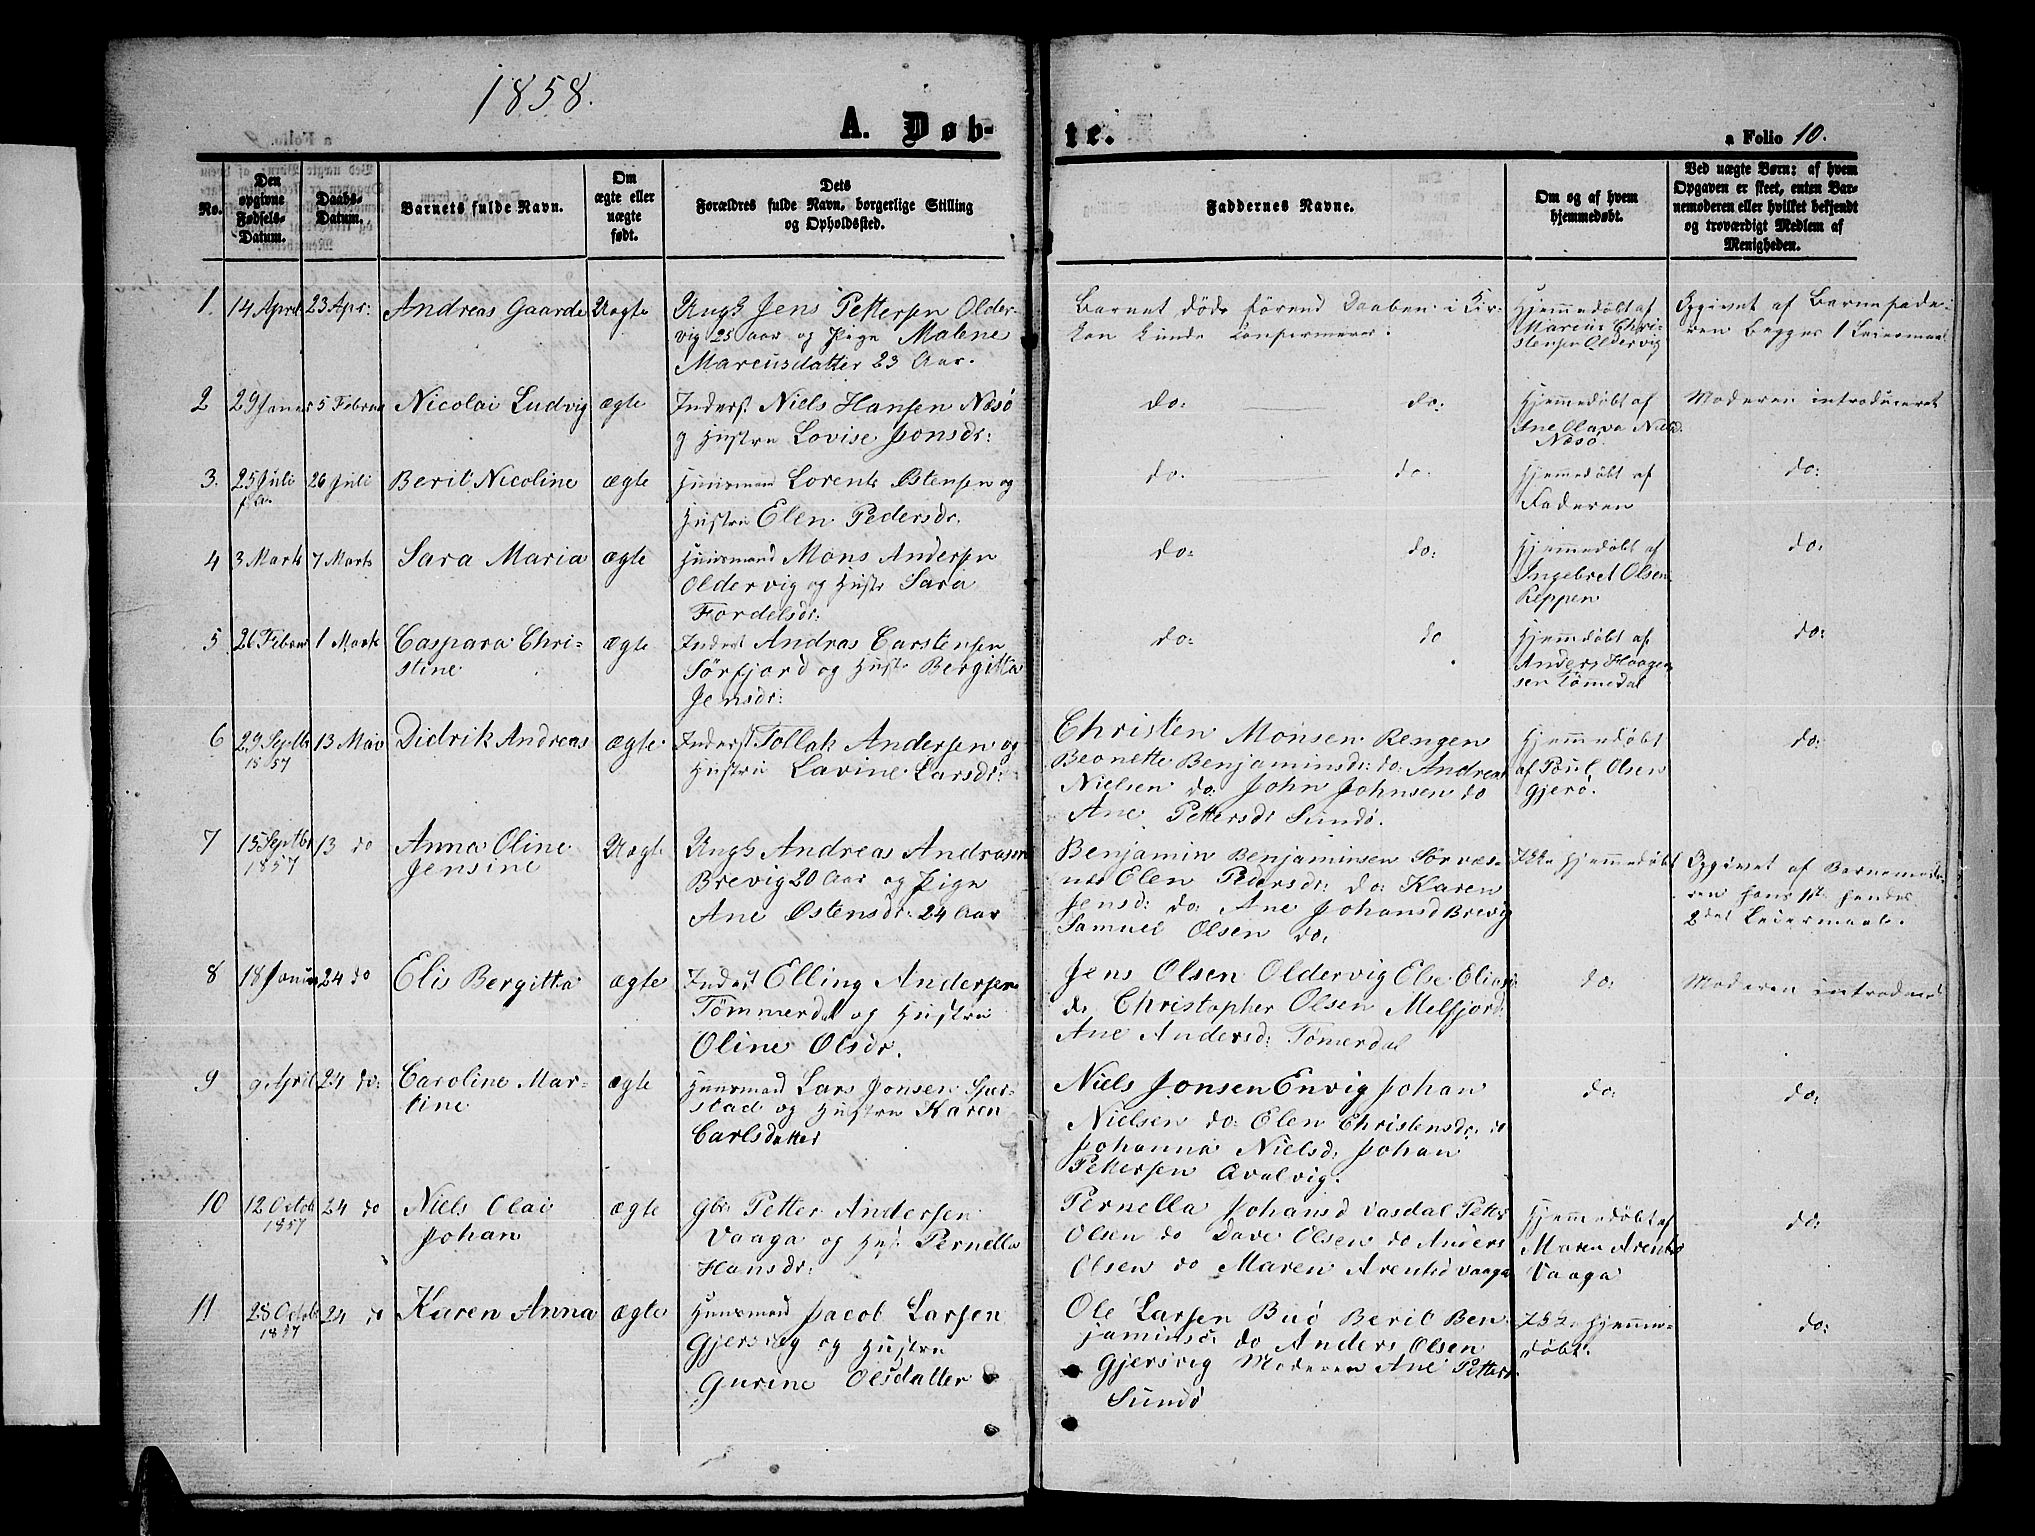 1858.
A. Døb-
te.
a Folio 10.
No.
Den opgivne Fødsels-Datum.
Daabs-Datum.
Barnets fulde Navn.
Om ægte eller uægte født.
Dets Forældres fulde Navn, borgerlige Stilling og Opholdssted.
Faddernes Navne.
Om og af hvem hjemmedøbt.
Ved uægte Børn: af hvem Opgaven er skeet, enten Barnemoderen eller hvilket bekjendt og troværdigt Medlem af Menigheden.
1. 14 April 23 Apr: Andreas Gaarde Uægte
Ungk Jens Pettersen Older-
vig 25 aar og Pige Malene
Marcusdatter 23 Aar.
Barnet døde førend Daaben i Kir-
ken kunde Confirmeres:
Hjemmedøbt af
Marcus Chri-
stensen Oldervig
Opgivet af Barnefade-
ren begges 1 Leiermaal
2 29 Januar 5 Februar Nicolai Ludvig ægte
Inderst Niels Hansen Næsø
og Hustru Lovise Jonsdr:
do: do:
Hjemmedøbt af
Ane Olava Nielsd.
Næsø.
Moderen introduceret
3. 25 Juli 26 Juli Berit Nicoline ægte
f. A.
Huusmand Lorents Østensen og
Hustru Elen Pedersdr.
do. do.
Hjemmedøbt af
Faderen
do:
4 3 Marts 7 Marts Sara Maria ægte
Huusmand Mons Andersen
Oldervig og Hustr Sara
Fordelsdr:
do: do:
Hjemmedøbt af
Ingebret Olsen
Reppen
do:
5 26 Febru 1 Marts Caspara Chri-
stine
ægte
Inderst Andras Carstensen
Sørfjord og Hust Bergitta
Jensdr:
do: do
Hjemmedøbt af
Anders Haagen
sen Tömmedal
do:
6 29 Septbr 13 Mai Didrik Andreas ægte
1857
Inderst Tollak Andersen og
Hustru Lavine Larsdr:
Christen Monsen Rengen
Beonette Benjaminsdr: do: Andreas
Nielsen do: John Johnsen do
Ane Pettersdr Sundø.
Hjemmedøbt
af Poul Olsen
Gjerø.
do:
7 15 Septbr 13 do Anna Oline
1857 Jensine
Uægte
Ungk Andreas Andrasen
Brevig 20 Aar og Pige
Ane Østensdr. 24 Aar
Benjamin Benjaminsen Sørvæs-
nes Elen Pedersdr: do: Karen
Jensd: do: Ane Johansd Brevig
Samuel Olsen do:
Ikke hjemmedøbt
Opgivet af Barnemode
ren hans 1ste hendes
2det Leiermaal.
8 18 Januar 24 do Elis Bergitta ægte
Inderst Elling Andersen
Tømmerdal og Hustru
Oline Olsdr.
Jens Olsen Oldervig Else Eliasd:
do Christopher Olsen Melfjord:
Ane Andersd: Tømerdal
do:
Moderen introduceret
9 9 April 24 do: Caroline Mar-
tine
ægte
Huusmand Lars Jonsen Sper-
stad og Hustru Karen
Carlsdatter
Niels Jonsen Envig Johan
Nielsen do: Elen Christensdr: do
Johanna Nielsd: Johan
Pettersen Qvalvig.
do:
do:
10 12 Octob 24 do Niels Olai
1857 Johan
ægte
Gbr Petter Andersen
Vaaga og Hust Pernella
Hansdr:
Pernella Johansd Vasdal Petter
Olsen do Dave Olsen do Anders
Olsen do Maren Arentsd Vaaga
Hjemmedøbt af
Maren Arentsd
Vaaga
do:
11 28 Octob 24 do Karen Anna ægte
1857
Huusmand Jacob Larsen
Gjersvig og Hustru
Gurine Olsdatter
Ole Larsen Buø Berit Ben-
jaminsd: do Anders Olsen
Gjersvig Moderen Ane Petters
Sundø
Ikke hjemme-
døbt.
do: